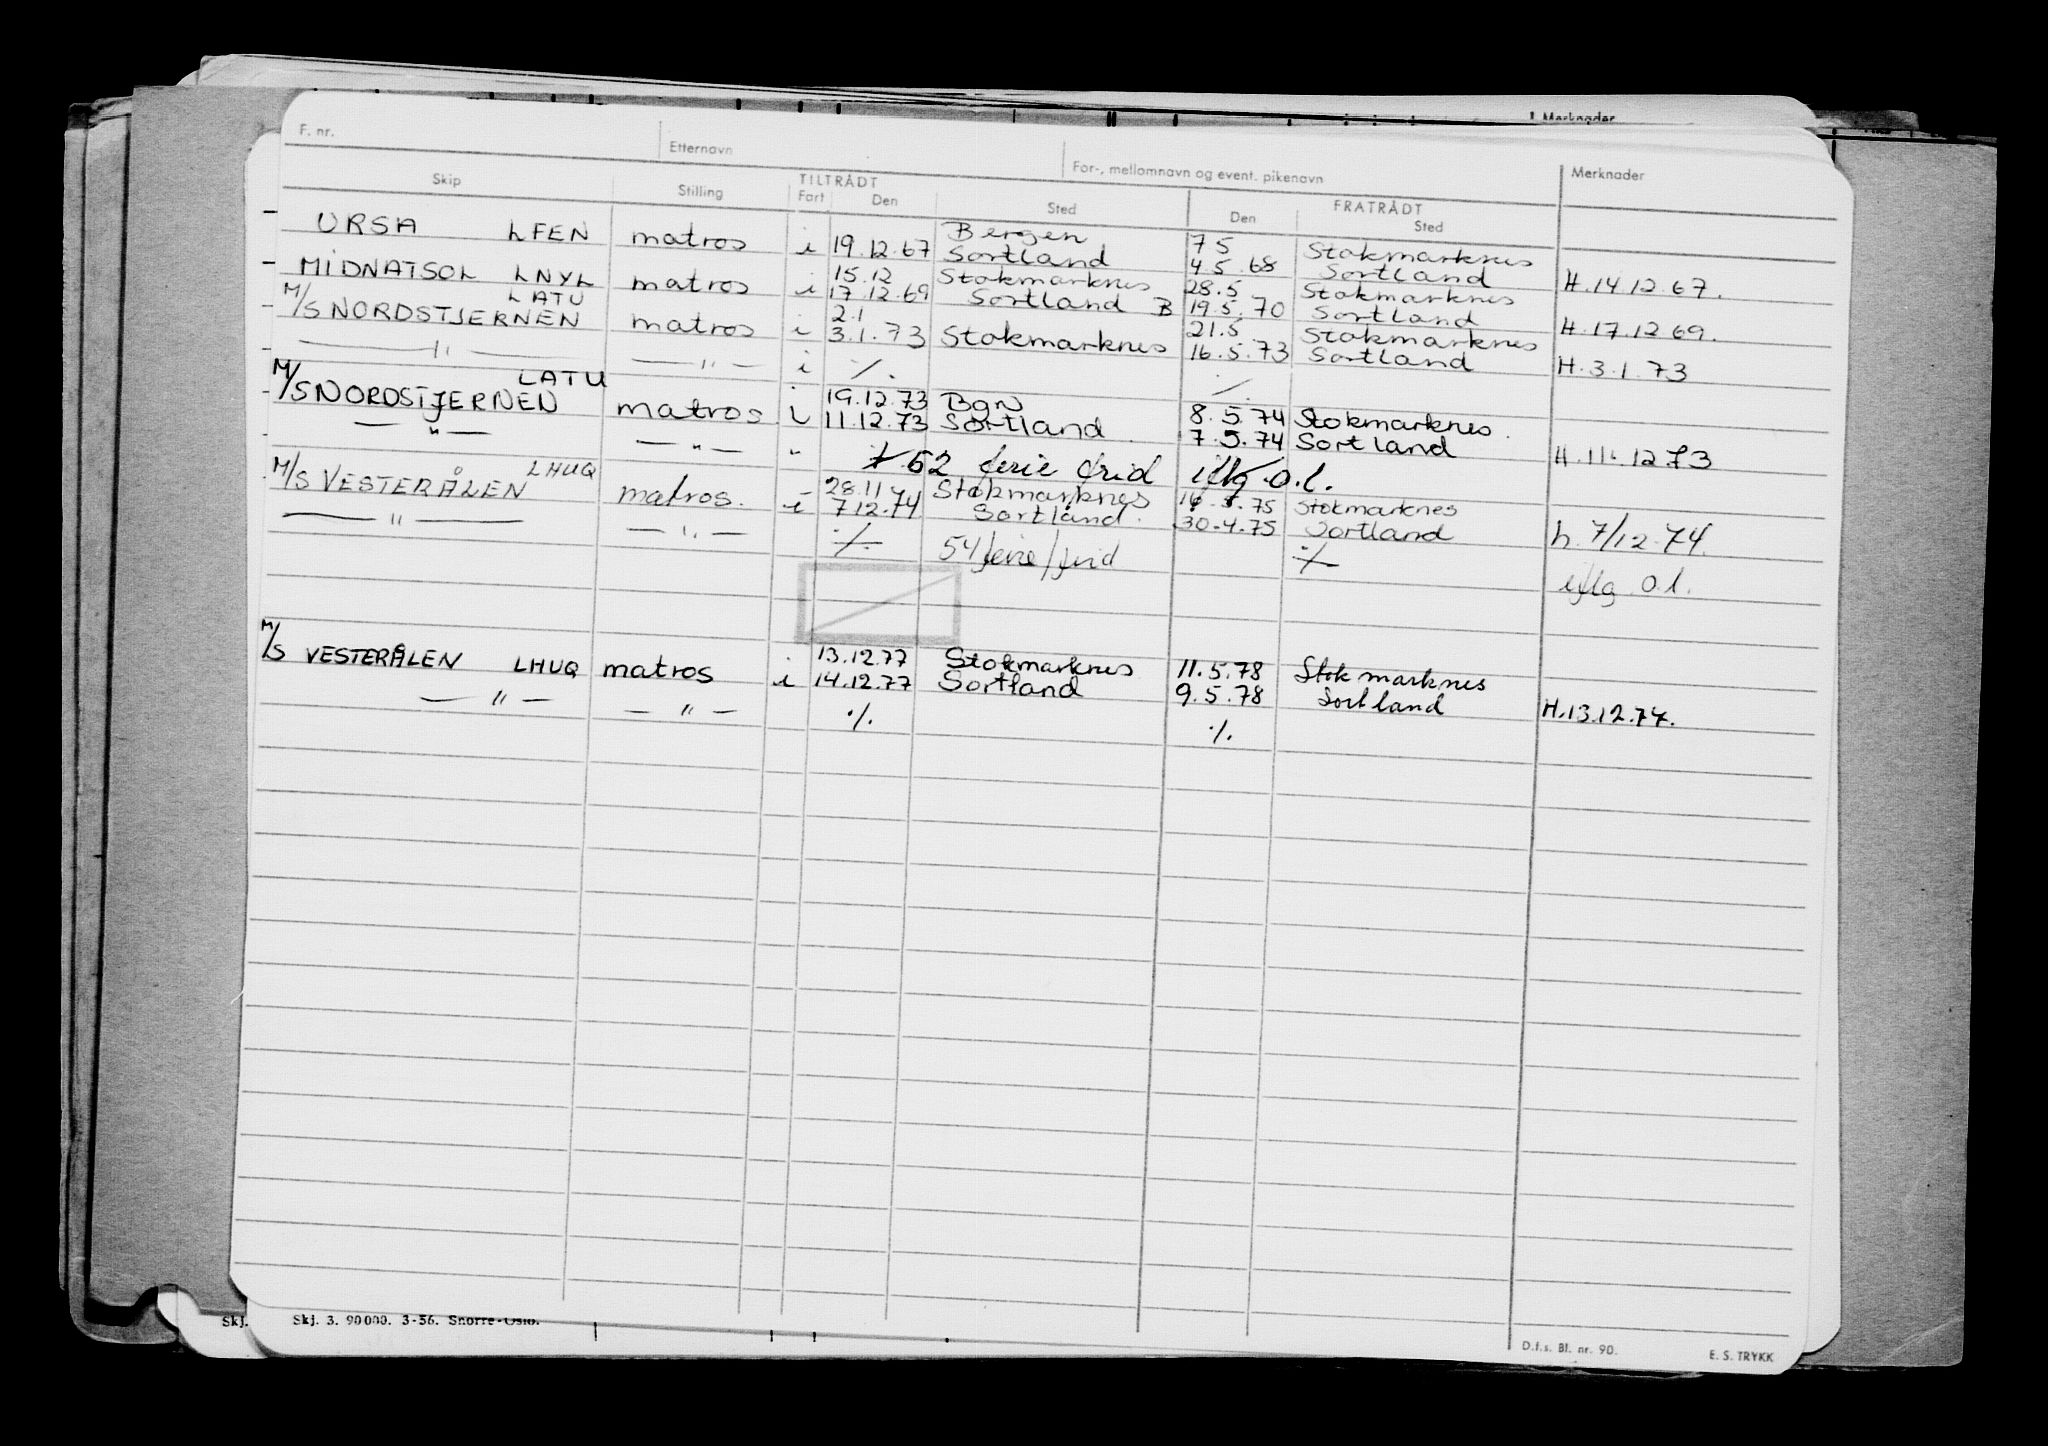 Merknader
F. nr. Etternavn For-, mellomnavn og event. pikenavn Merknader
Skip Stilling TILTRÅDT FRATRÅDT
Fart Den Sted Den Sted
Bergen 7 5 Stokmarknes
URSA LFEN matros i 19.12.67 Sortland 4.5.68 Sortland H.14.12.67.
15.12 Stokmarknes 28.5 Stokmarknes
MIDNATSOL LNYL matros i 17.12.69 Sortland B 19.5.70 Sortland H.17.12.69.
LATU 2.1 21.5 Stokmarknes
M/S NORDSTJERNEN matros i 3.1.73 Stokmarknes 16.5.73 Sortland H.3.1.73
— " — — " — i ./. ./.
LATU 19.12.73 Bgn 8.5.74 Stokmarknes.
M/S NORDSTJERNEN matros i 11.12.73 Sortland 7.5.74 Sortland H.11.12.73
— " — — " — " ./. 62 ferie frid iflg. o.l.
LHUQ 28.11 Stokmarknes 14.5.75 Stokmarknes
M/S VESTERÅLEN matros. i 7.12.74 Sortland. 30.4.75 Sortland h. 7/12.74.
— " — — " — ./. 54 ferie/frid ./. iflg. o.l.
13.12.77 Stokmarknes 11.5.78 Stokmarknes
M/S VESTERÅLEN LHUQ matros i 14.12.77 Sortland 9.5.78 Sortland H.13.12.77.
— " — — " — ./. ./.
Skj. Skj. 3. 90000. 3-56. Snorre-Oslo.
D.f.s. Bl. nr. 90. E. S. TRYKK